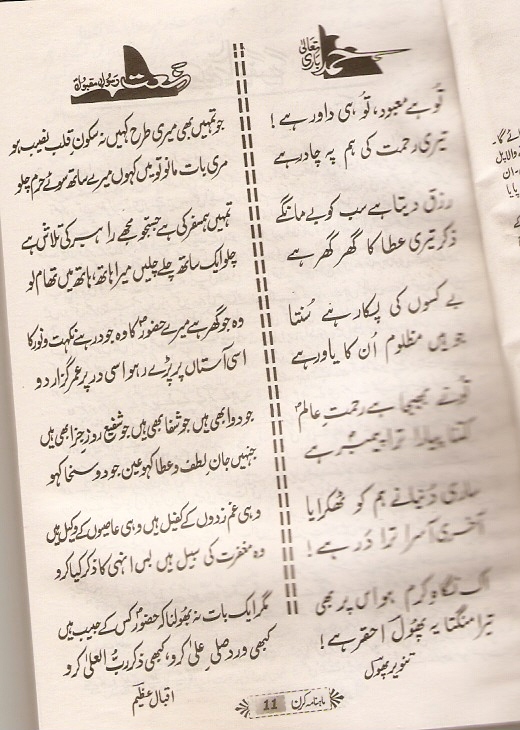 حمد باری تعالیٰ
تُو ہے معبود، تُو ہی داور ہے!
تیری رحمت کی ہم پہ چادر ہے
رزق دیتا ہے سب کو بے مانگے
ذکر تیری عطا کا گھر گھر ہے
بے کسوں کی پکار ہے سُنتا
جو ہیں مظلوم اُن کا یاور ہے
تُو نے بھیجا ہے رحمتِ عالمؐ
کتنا پیارا ترا پیمبرؐ ہے
ساری دُنیا نے ہم کو ٹھکرایا
آخری آسرا ترا دَر ہے!
اک نگاہِ کرم ہو اس پر بھی
تیرا منگتا یہ پھولؔ احقر ہے!
تنویر پھولؔ
نعت رسول مقبولؐ
جو تمہیں بھی میری طرح کہیں نہ سکونِ قلب نصیب ہو
مری بات مانو تو میں کہوں میرے ساتھ سوئے حرم چلو
تمہیں ہمسفر کی ہے جستجو مجھے راہبر کی تلاش ہے
چلو ایک ساتھ چلے چلیں میرا ہاتھ، ہاتھ میں تھام لو
وہ جو گھر ہے میرے حضورؐ کا وہ جو در ہے نکہت و نور کا
اسی آستاں پر پڑے رہو اسی در پر عمر گزار دو
جو دوا بھی ہیں جو شفا بھی ہیں جو شفیع روزِ جزا بھی ہیں
جنہیں جانِ لطف و عطا کہو عین جود و سخا کہو
وہی غم زدوں کے کفیل ہیں وہی عاصیوں کے وکیل ہیں
وہ مغفرت کی سبیل ہیں بس انہی کا ذکر کیا کرو
مگر ایک بات نہ بھولنا کہ حضورؐ کس کے حبیب ہیں
کبھی وردِ صلِ علیٰ کرو، کبھی ذکرِ ربُّ العلیٰ کرو
اقبال عظیمؔ
ماہنامہ کرن 11